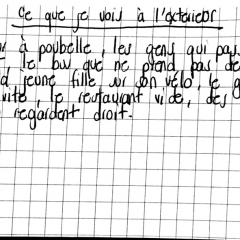 Ce que je vois à l'exterieor
à poubelle, les gens qui pas
le bus que ne prend pas de
d jeune fille sur son vélo, le g
vite, le restaurant vide, des
regardent droit.